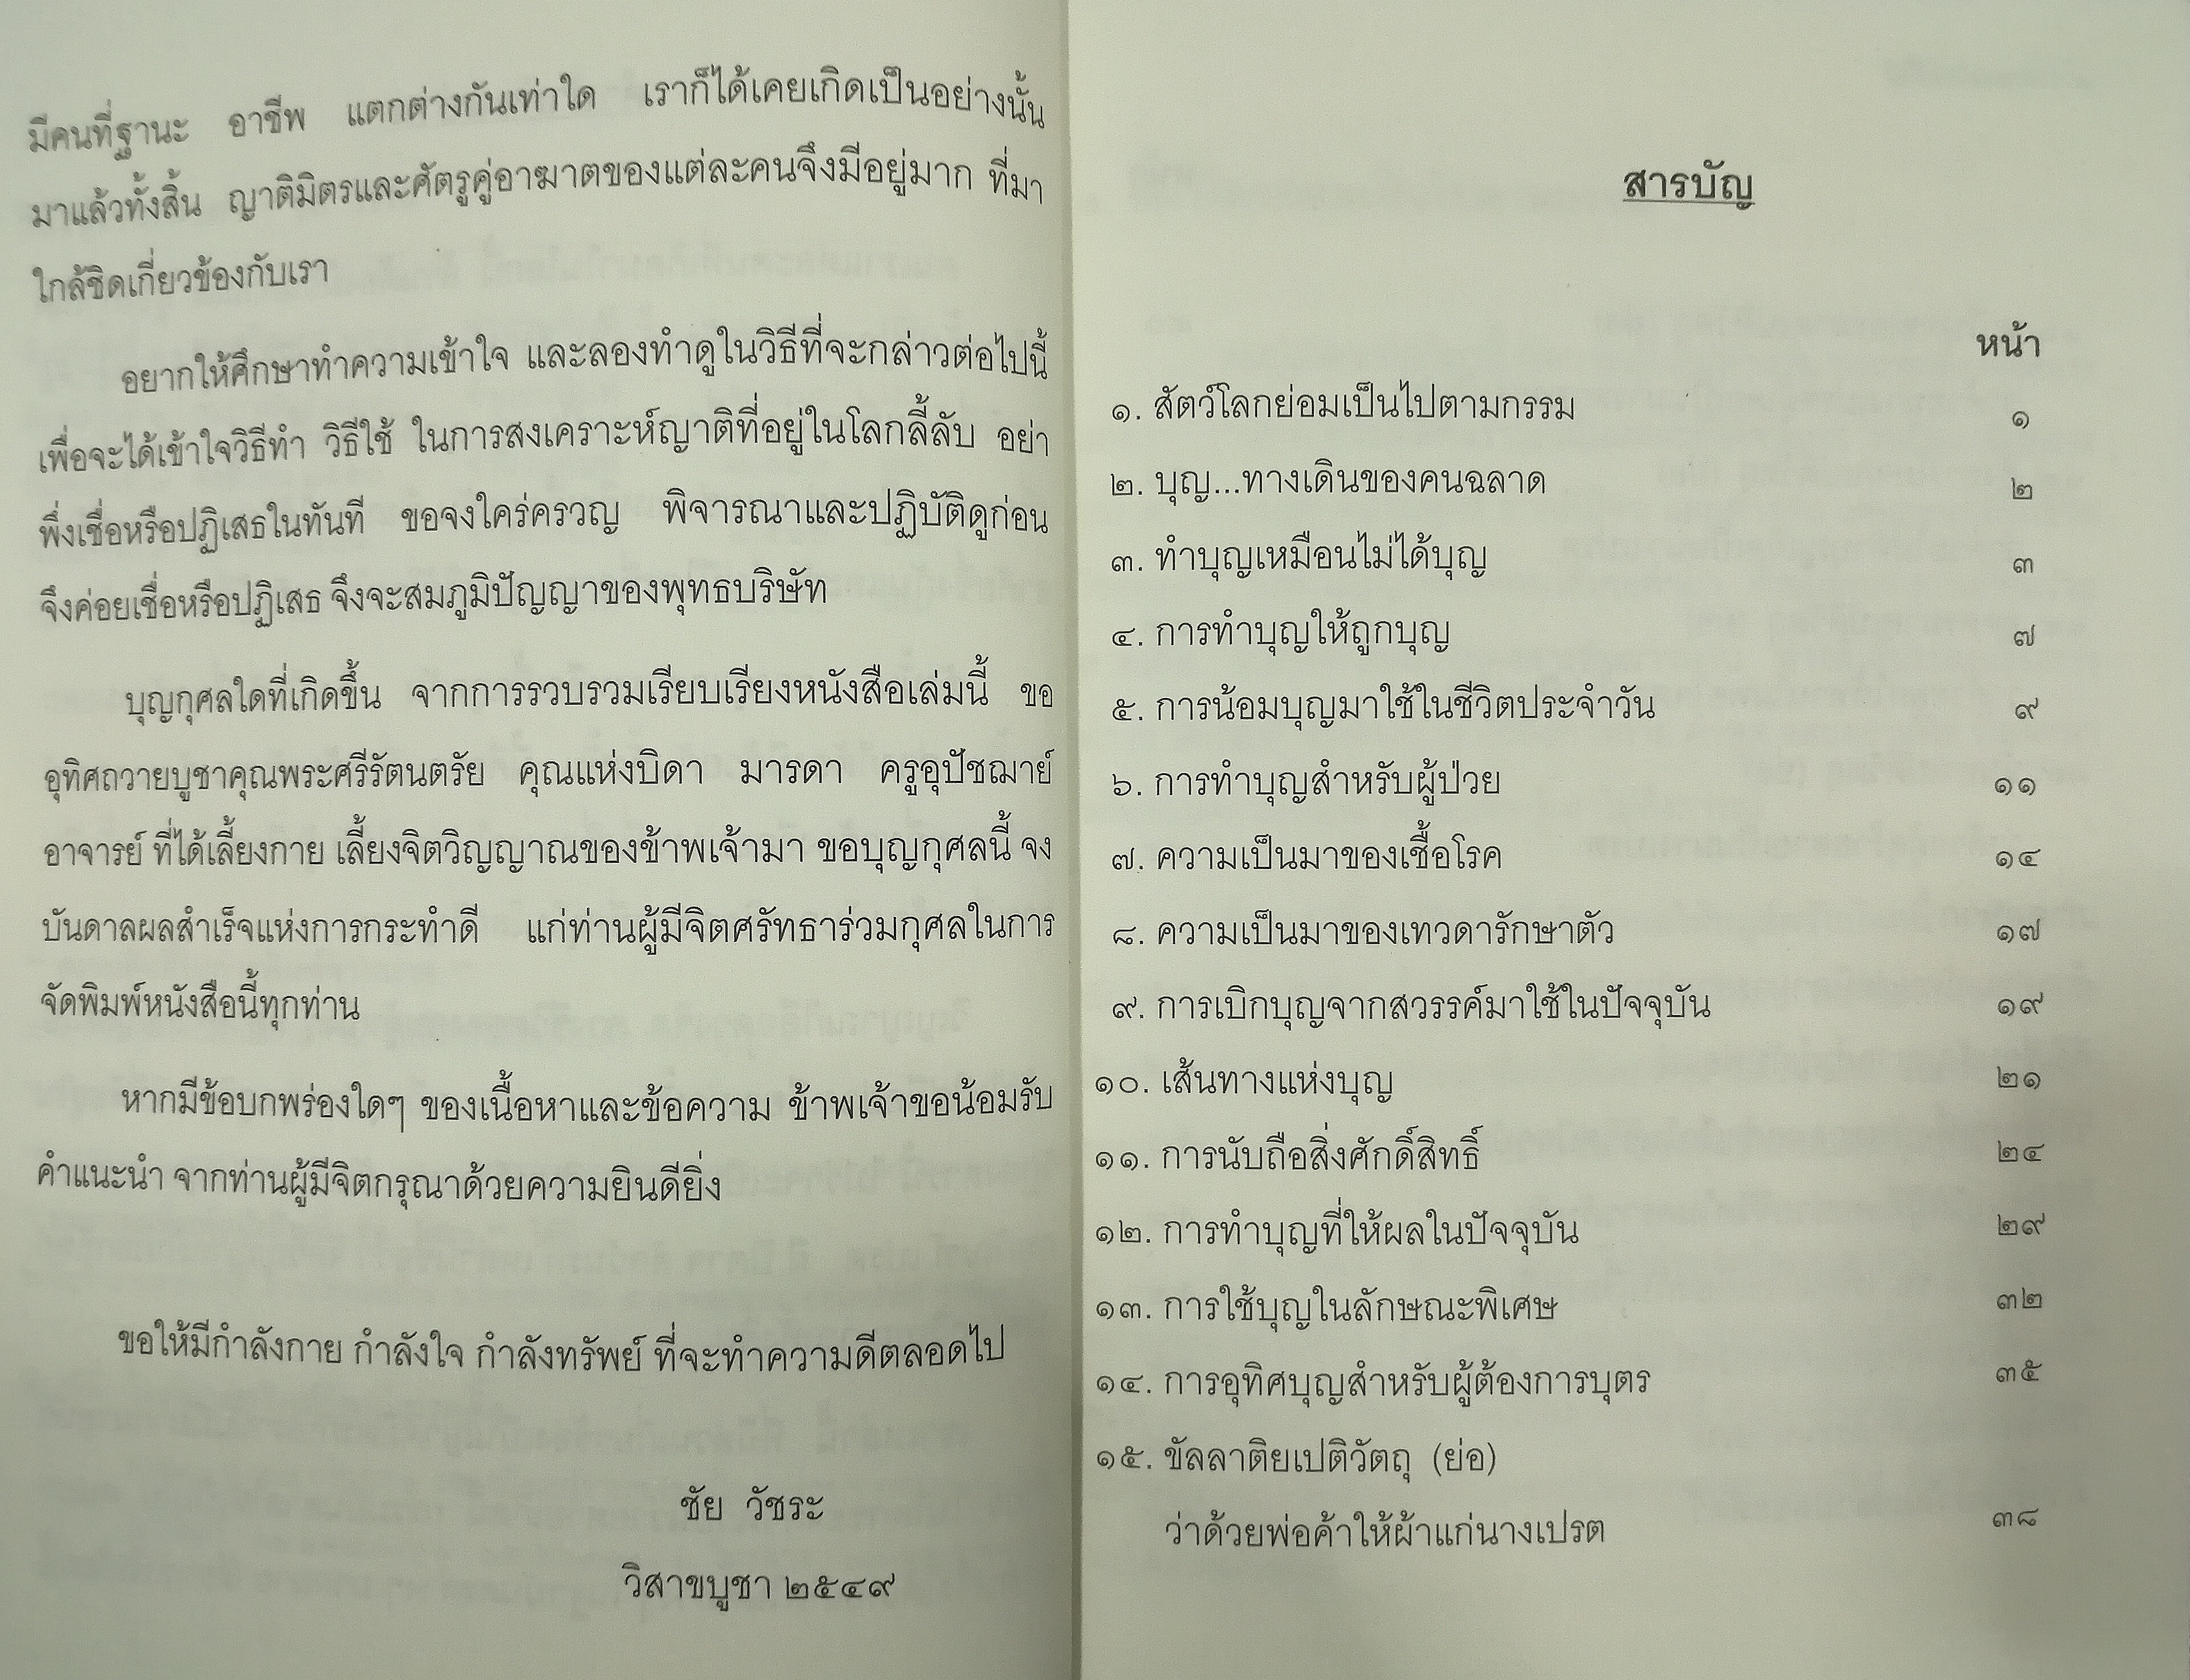 มีคนที่ฐานะ อาชีพ แตกต่างกันเท่าใด เราก็ได้เคยเกิดเป็นอย่างนั้น
มาแล้วทั้งสิ้น ญาติมิตรและศัตรูคู่อาฆาตของแต่ละคนจึงมีอยู่มาก ที่มา
ใกล้ชิดเกี่ยวข้องกับเรา
อยากให้ศึกษาทำความเข้าใจ และลองทำดูในวิธีที่จะกล่าวต่อไปนี้
เพื่อจะได้เข้าใจวิธีทำ วิธีใช้ ในการสงเคราะห์ญาติที่อยู่ในโลกลี้ลับ อย่า
พึ่งเชื่อหรือปฏิเสธในทันที ขอจงใคร่ครวญ พิจารณาและปฏิบัติดูก่อน
จึงค่อยเชื่อหรือปฏิเสธ จึงจะสมภูมิปัญญาของพุทธบริษัท
บุญกุศลใดที่เกิดขึ้น จากการรวบรวมเรียบเรียงหนังสือเล่มนี้ ขอ
อุทิศถวายบูชาคุณพระศรีรัตนตรัย คุณแห่งบิดา มารดา ครูอุปัชฌาย์
อาจารย์ ที่ได้เลี้ยงกาย เลี้ยงจิตวิญญาณของข้าพเจ้ามา ขอบุญกุศลนี้ จง
บันดาลผลสำเร็จแห่งการกระทำดี แก่ท่านผู้มีจิตศรัทธาร่วมกุศลในการ
จัดพิมพ์หนังสือนี้ทุกท่าน
หากมีข้อบกพร่องใดๆ ของเนื้อหาและข้อความ ข้าพเจ้าขอน้อมรับ
คำแนะนำ จากท่านผู้มีจิตกรุณาด้วยความยินดียิ่ง
ขอให้มีกำลังกาย กำลังใจ กำลังทรัพย์ ที่จะทำความดีตลอดไป
ชัย วัชระ
วิสาขบูชา ๒๕๔๙
สารบัญ
หน้า
๑. สัตว์โลกย่อมเป็นไปตามกรรม ๑
๒. บุญ...ทางเดินของคนฉลาด ๒
๓. ทำบุญเหมือนไม่ได้บุญ ๓
๔. การทำบุญให้ถูกบุญ ๗
๕. การน้อมบุญมาใช้ในชีวิตประจำวัน ๙
๖. การทำบุญสำหรับผู้ป่วย ๑๑
๗. ความเป็นมาของเชื้อโรค ๑๔
๘. ความเป็นมาของเทวดารักษาตัว ๑๗
๙. การเบิกบุญจากสวรรค์มาใช้ในปัจจุบัน ๑๙
๑๐. เส้นทางแห่งบุญ ๒๑
๑๑. การนับถือสิ่งศักดิ์สิทธิ์ ๒๔
๑๒. การทำบุญที่ให้ผลในปัจจุบัน ๒๙
๑๓. การใช้บุญในลักษณะพิเศษ ๓๒
๑๔. การอุทิศบุญสำหรับผู้ต้องการบุตร ๓๕
๑๕. ขัลลาติยเปติวัตถุ (ย่อ)
ว่าด้วยพ่อค้าให้ผ้าแก่นางเปรต ๓๘